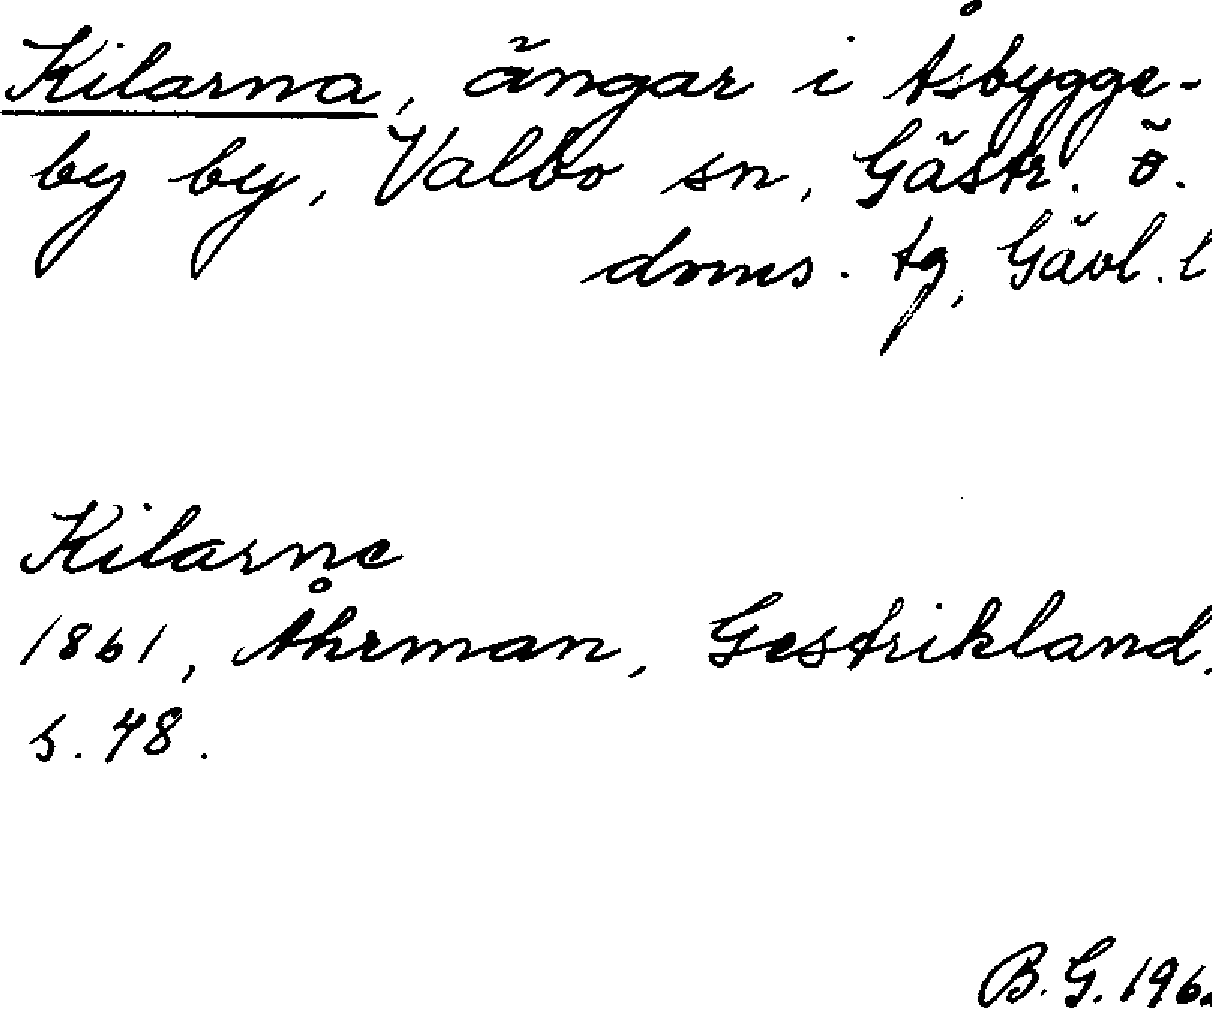 Kilarna, ängar i Åsbygge-
by by, Valbo sn, Gästr. ö.
doms. tg, Gävl. l
Kilarne
1861, Åhrman, Gestrikland,
s. 48.
B. G. 196